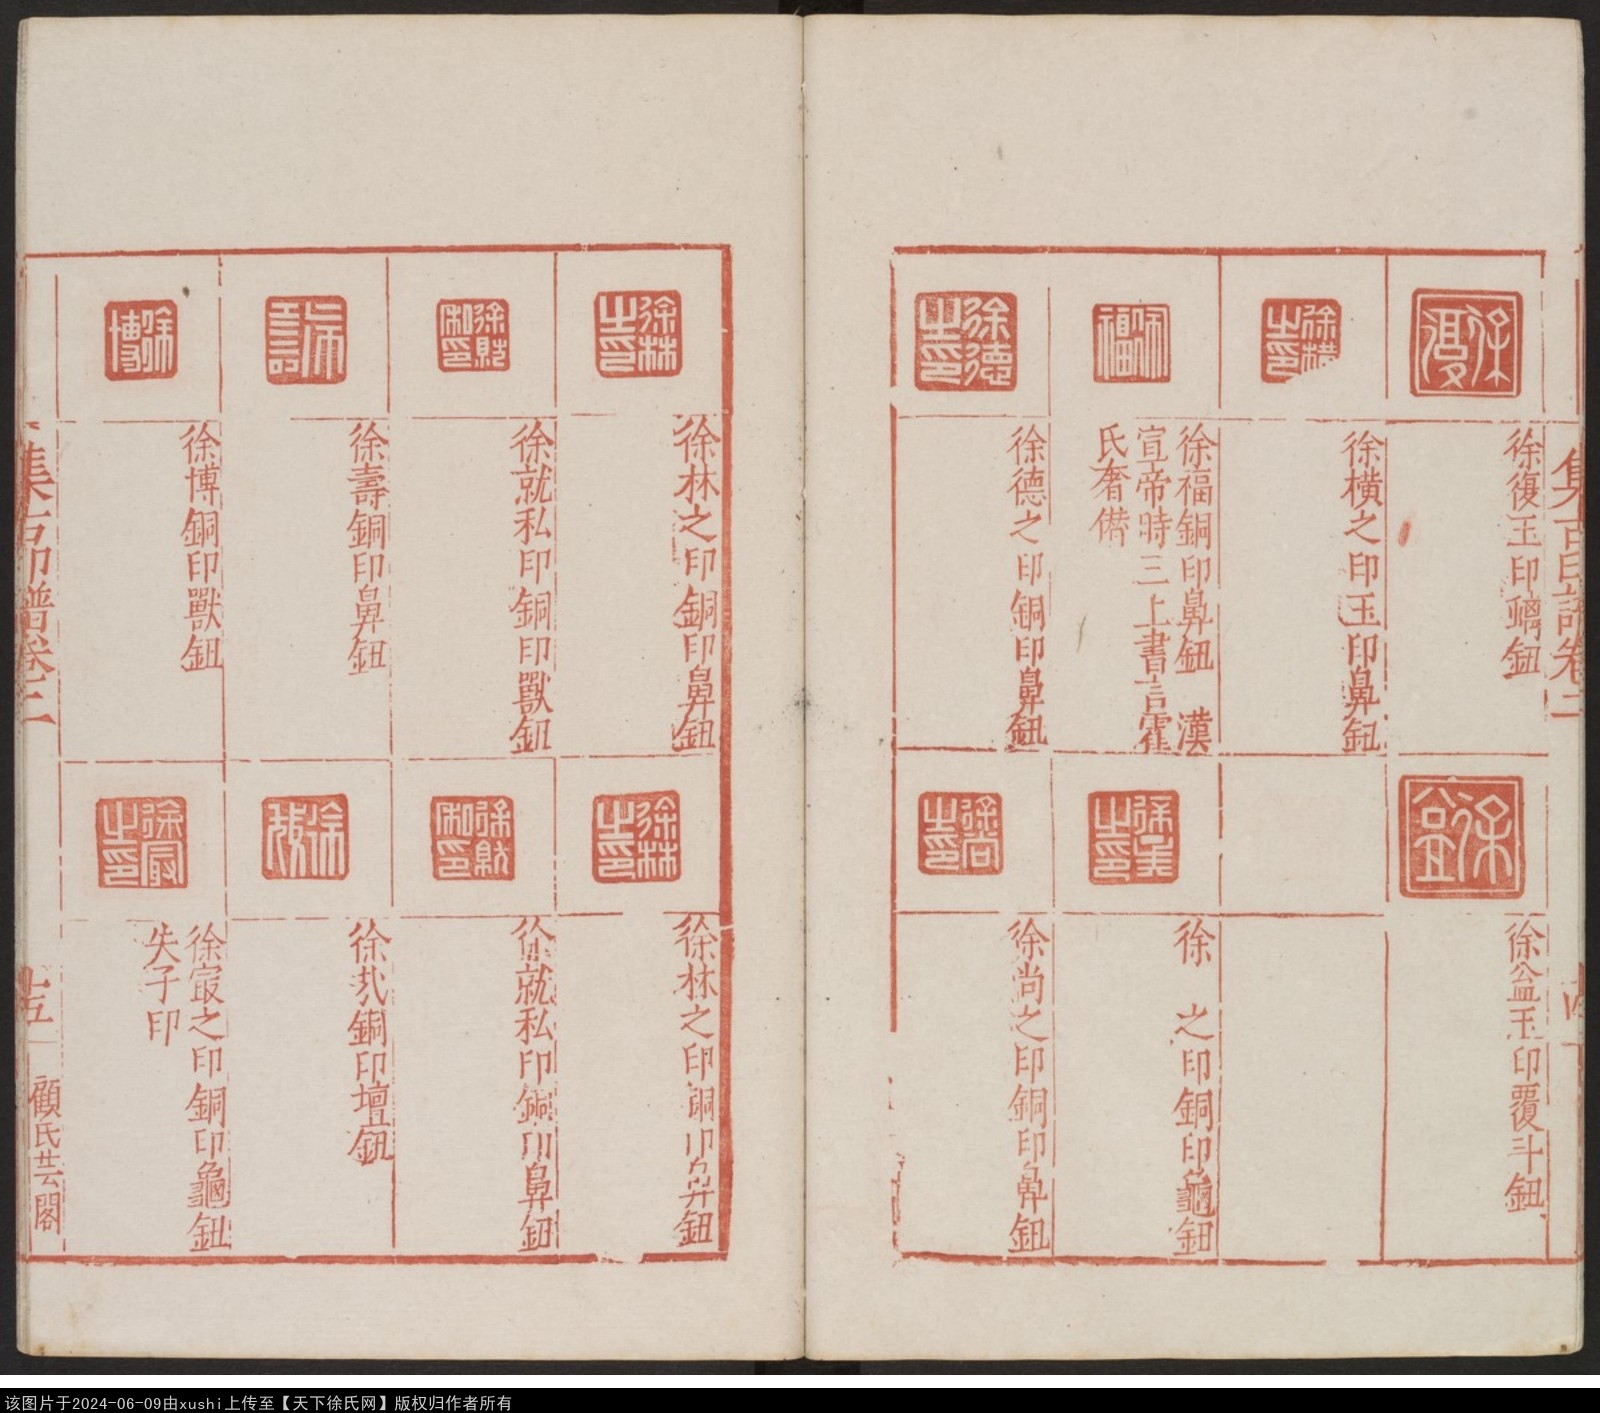 集古印譜卷二
徐復
徐復玉印螭鈕
徐橫之印
徐橫之印玉印鼻鈕
徐福
徐福銅印鼻鈕 漢
宣帝時三上書言霍
氏奢僭
徐德之印
徐德之印銅印鼻鈕
徐益
徐益玉印覆斗鈕
徐 之印銅印龜鈕
徐尚之印
徐尚之印銅印鼻鈕
徐林之印
徐林之印銅印鼻鈕
徐就私印
徐就私印銅印獸鈕
徐壽
徐壽銅印鼻鈕
徐博
徐博銅印獸鈕
徐林之印
徐林之印銅印鼻鈕
徐就私印
徐就私印銅印鼻鈕
銅印壇鈕
徐㝡之印
徐㝡之印銅印龜鈕
失子印
集古印譜卷二
十五
顧氏芸閣
该图片于2024-06-09由xushi上传至【天下徐氏网】版权归作者所有